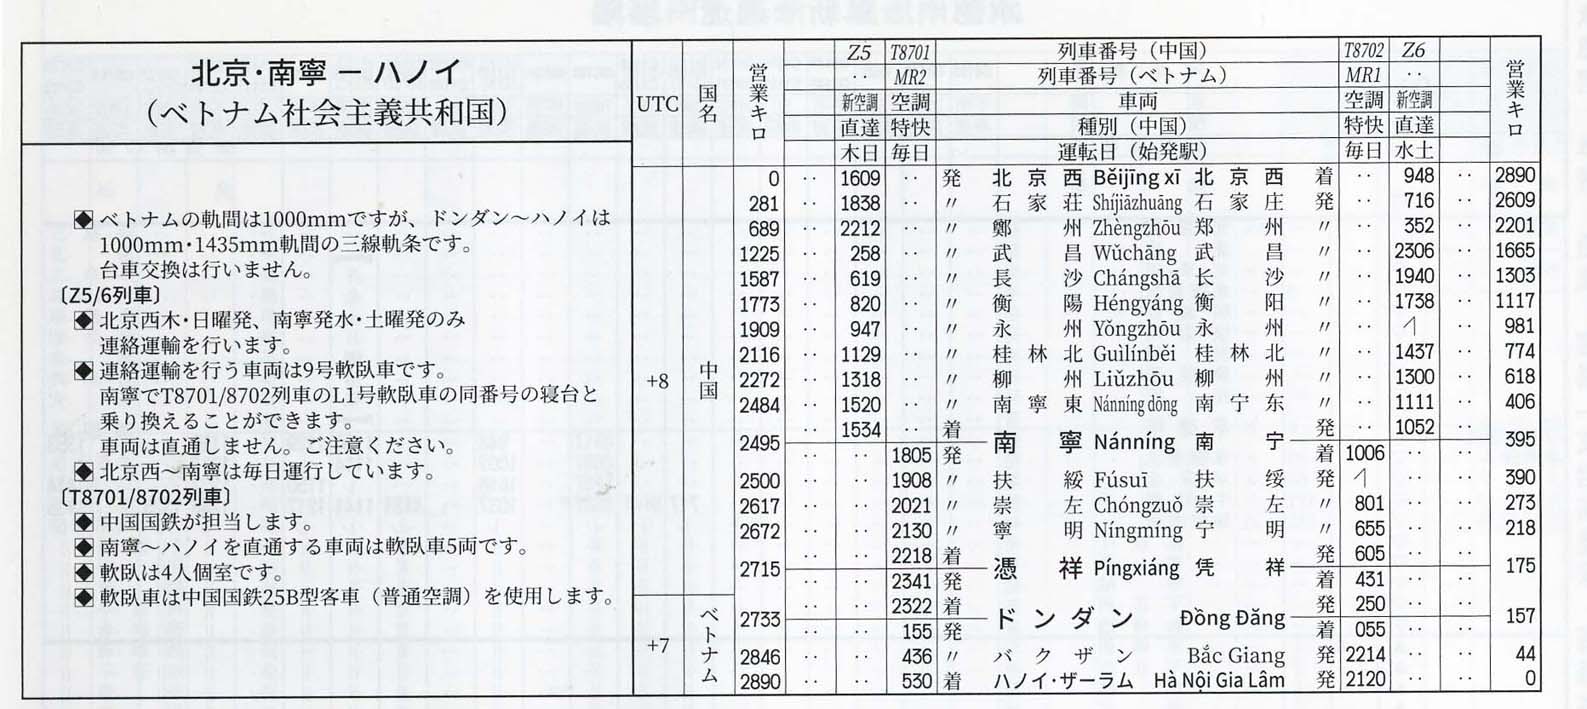 北京・南寧 ーハノイ
（ベトナム社会主義共和国）
◆ ベトナムの軌間は1000mmですが、ドンダン～ハノイは
1000mm・1435mm軌間の三線軌条です。
台車交換は行いません。
〔Z5/6列車〕
◆ 北京西木・日曜発、南寧発水・土曜発のみ
連絡運輸を行います。
◆ 連絡運輸を行う車両は9号軟臥車です。
南寧でT8701/8702列車のL1号軟臥車の同番号の寝台と
乗り換えることができます。
車両は直通しません。ご注意ください。
◆ 北京西～南寧は毎日運行しています。
〔T8701/8702列車〕
◆ 中国国鉄が担当します。
◆ 南寧～ハノイを直通する車両は軟臥車5両です。
◆ 軟臥は4人個室です。
◆ 軟臥車は中国国鉄25B型客車（普通空調）を使用します。
UTC 国名 営業キロ Z5 T8701 列車番号（中国） T8702 Z6 営業キロ
‥ MR2 列車番号（ベトナム） MR1 ‥
新空調 空調 車両 空調 新空調
直達 特快 種別（中国） 特快 直達
木日 毎日 運転日（始発駅） 毎日 水土
+8 中国
0 ‥ 1609 ‥ 発 北京西 Běijīng xī 北京西 着 ‥ 948 ‥ 2890
281 ‥ 1838 ‥ 〃 石家荘 Shíjiāzhuāng 石家庄 発 ‥ 716 ‥ 2609
689 ‥ 2212 ‥ 〃 鄭州 Zhèngzhōu 郑州 〃 ‥ 352 ‥ 2201
1225 ‥ 258 ‥ 〃 武昌 Wǔchāng 武昌 〃 ‥ 2306 ‥ 1665
1587 ‥ 619 ‥ 〃 長沙 Chángshā 长沙 〃 ‥ 1940 ‥ 1303
1773 ‥ 820 ‥ 〃 衡陽 Héngyáng 衡阳 〃 ‥ 1738 ‥ 1117
1909 ‥ 947 ‥ 〃 永州 Yǒngzhōu 永州 〃 ‥ ‥ 981
2116 ‥ 1129 ‥ 〃 桂林北 Guìlínběi 桂林北 〃 ‥ 1437 ‥ 774
2272 ‥ 1318 ‥ 〃 柳州 Liǔzhōu 柳州 〃 ‥ 1300 ‥ 618
2484 ‥ 1520 ‥ 〃 南寧東 Nánníng dōng 南宁东 〃 ‥ 1111 ‥ 406
1534 着 発 ‥ 1052 ‥
2495 南寧 Nánníng 南宁 395
‥ ‥ 1805 発 着 1006 ‥ ‥
2500 ‥ ‥ 1908 〃 扶綏 Fúsuī 扶绥 発 ‥ ‥ 390
2617 ‥ ‥ 2021 〃 崇左 Chóngzuǒ 崇左 〃 801 ‥ ‥ 273
2672 ‥ ‥ 2130 〃 寧明 Níngmíng 宁明 〃 655 ‥ ‥ 218
‥ ‥ 2218 着 発 605 ‥ ‥
2715 憑祥 Píngxiáng 凭祥 175
‥ ‥ 2341 発 着 431 ‥ ‥
+7 ベトナム
‥ ‥ 2322 着 発 250 ‥ ‥
2733 ドンダン Đồng Đăng 157
‥ ‥ 155 発 着 055 ‥ ‥
2846 ‥ ‥ 436 〃 バクザン Bắc Giang 発 2214 ‥ ‥ 44
2890 ‥ ‥ 530 着 ハノイ・ザーラム Hà Nội Gia Lâm 発 2120 ‥ ‥ 0